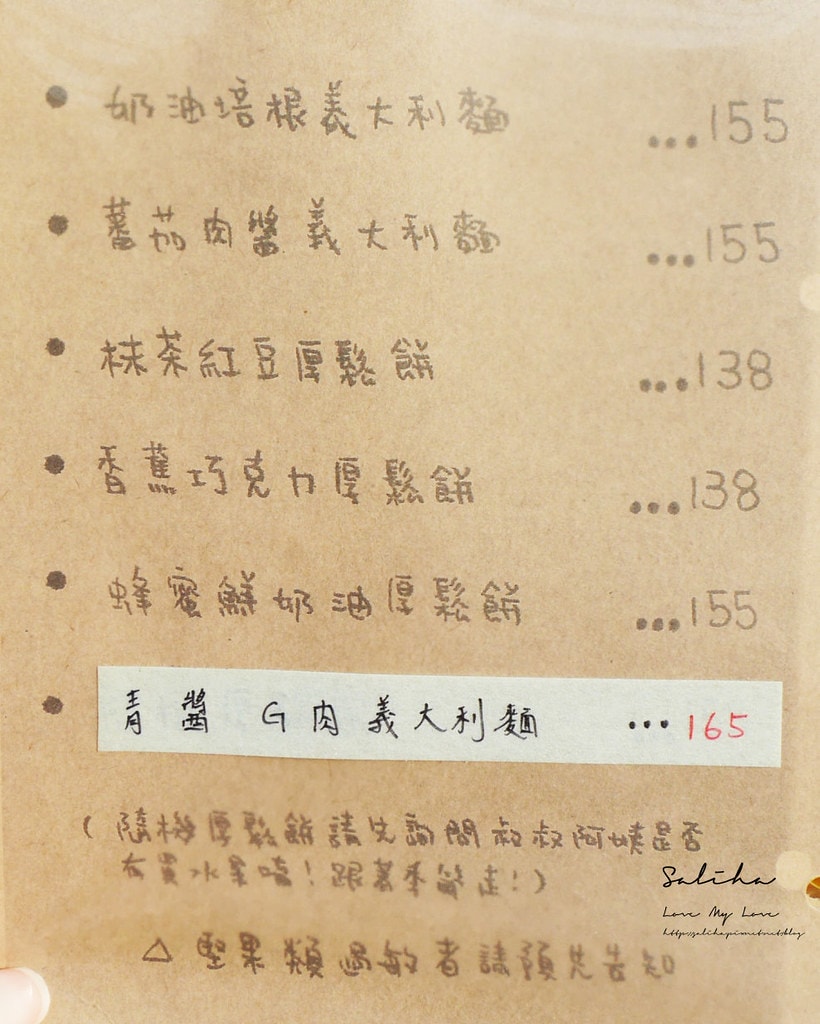 • 奶油培根義大利麵 ...155
• 蕃茄肉醬義大利麵 ...155
• 抹茶紅豆厚鬆餅 ...138
• 香蕉巧克力厚鬆餅 ...138
• 蜂蜜鮮奶油厚鬆餅 ...155
• 青醬 G肉義大利麵 ...165
(隨機厚鬆餅請先詢問叔叔阿姨是否
有買水果唷!跟著季節走!)
△ 堅果類過敏者請預先告知
Saliha
Love My Love